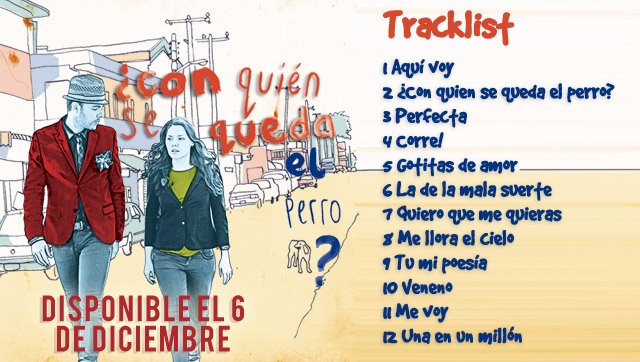 ¿con quién
se queda
el
perro
?
DISPONIBLE EL 6
DE DICIEMBRE
Tracklist
1 Aquí voy
2 ¿Con quien se queda el perro?
3 Perfecta
4 Corre!
5 Gotitas de amor
6 La de la mala suerte
7 Quiero que me quieras
8 Me llora el cielo
9 Tu mi poesía
10 Veneno
11 Me voy
12 Una en un millón